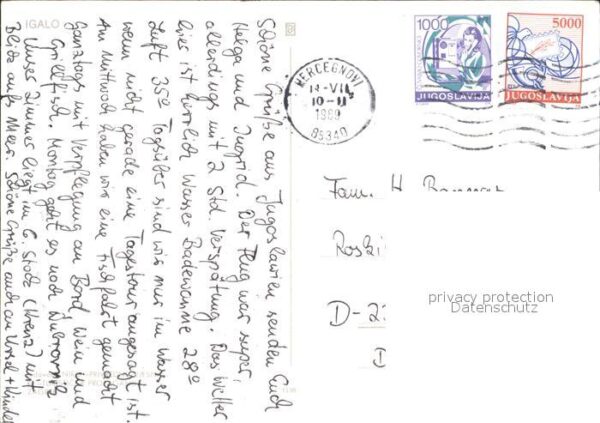 IGALO
Schöne Grüße aus Jugoslawien senden Euch
Helga und Ingrid. Der Flug war super,
allerdings mit 2 Std. Verspätung. Das Wetter
hier ist herrlich Wasser Badewanne 28°
Luft 35° Tagsüber sind wir nur im Wasser
wenn nicht gerade eine Tagestour angesagt ist.
Am Mittwoch haben wir eine Fischfahrt gemacht
Ganztags mit Verpflegung an Bord, Wein und
Grillfisch. Montag geht es nach Dubrovnik
Unser Zimmer liegt im 6. Stock (Kreuz) mit
Blick aufs Meer. Schöne Grüße auch an Ursel + Kinder
HERCEGNOVI
10-11
1989
85340
1000
JUGOSLAVIJA
5000
JUGOSLAVIJA
Fam. H.
D-2
privacy protection
Datenschutz